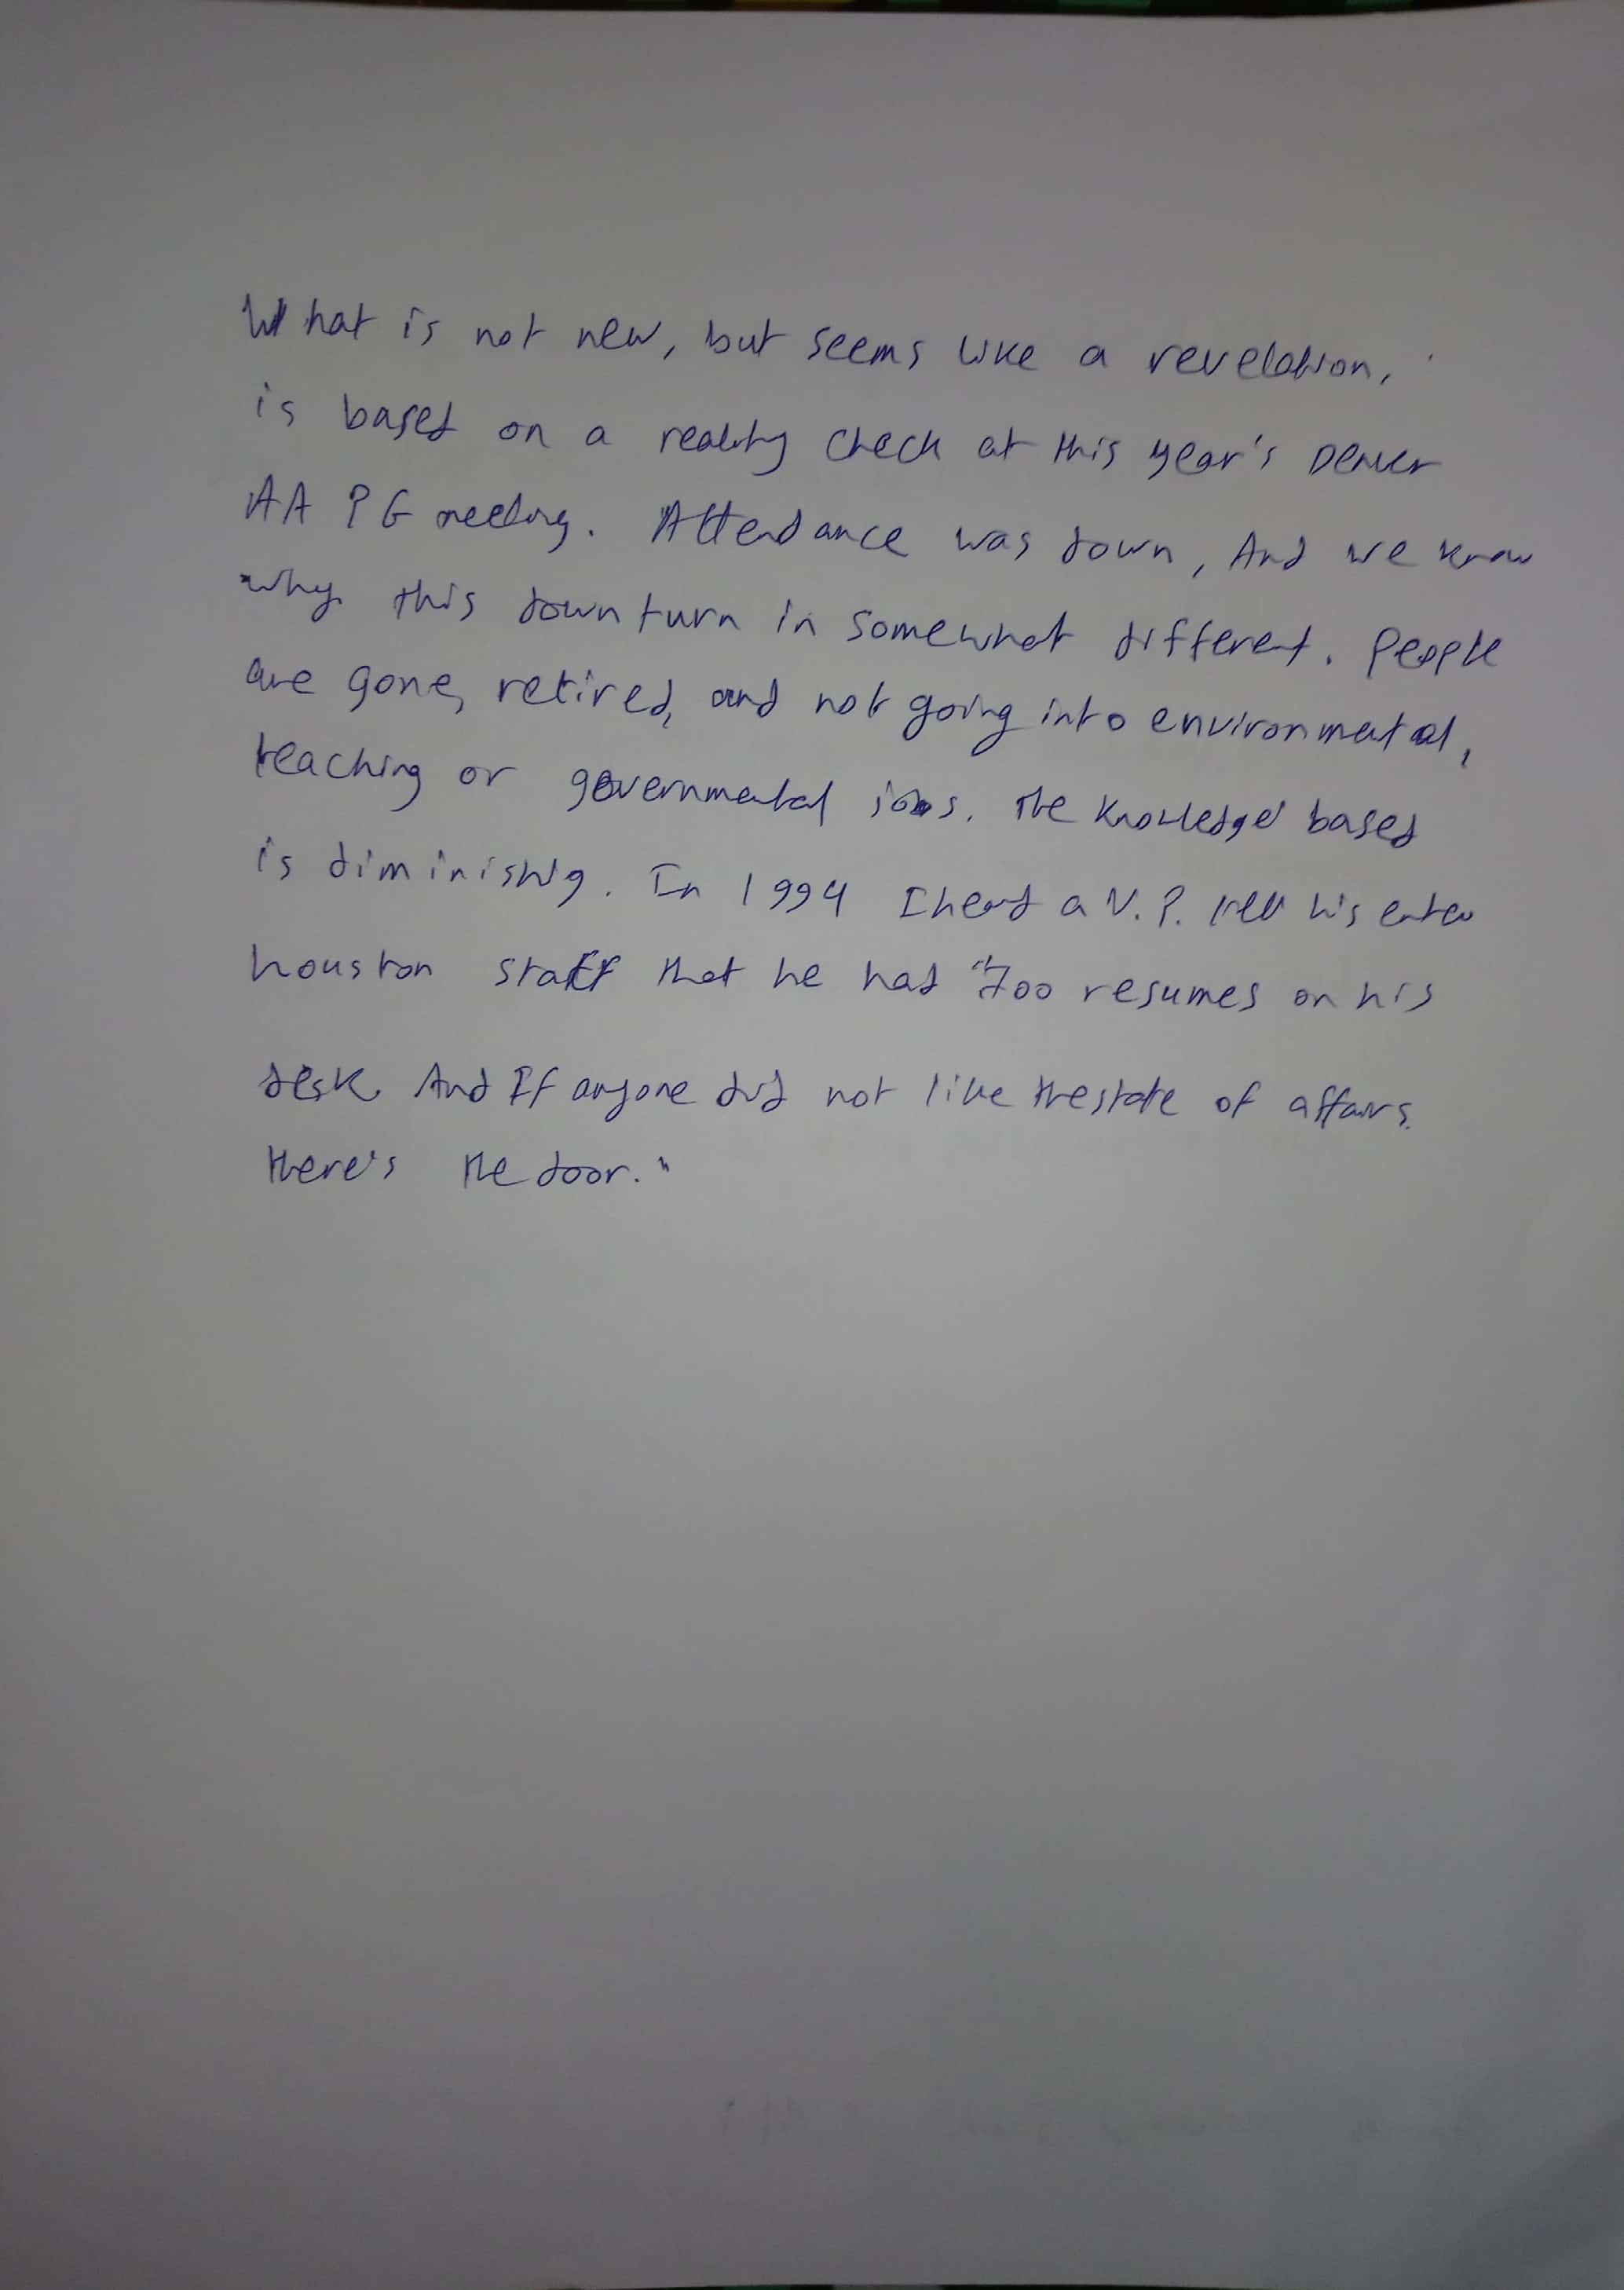 What is not new, but seems like a revelation,
is based on a reality check at this year's Denver
AAPG meeting. Attendance was down, And we know
why this downturn in somewhat different. people
are gone, retired, and not going into environmental,
teaching or governmental jobs. The knowledge based
is diminishig. In 1994 I heard a V.P. tell his
houston staff that he had "700 resumes on his
desk. And If anyone did not like the state of affairs.
there's the door."